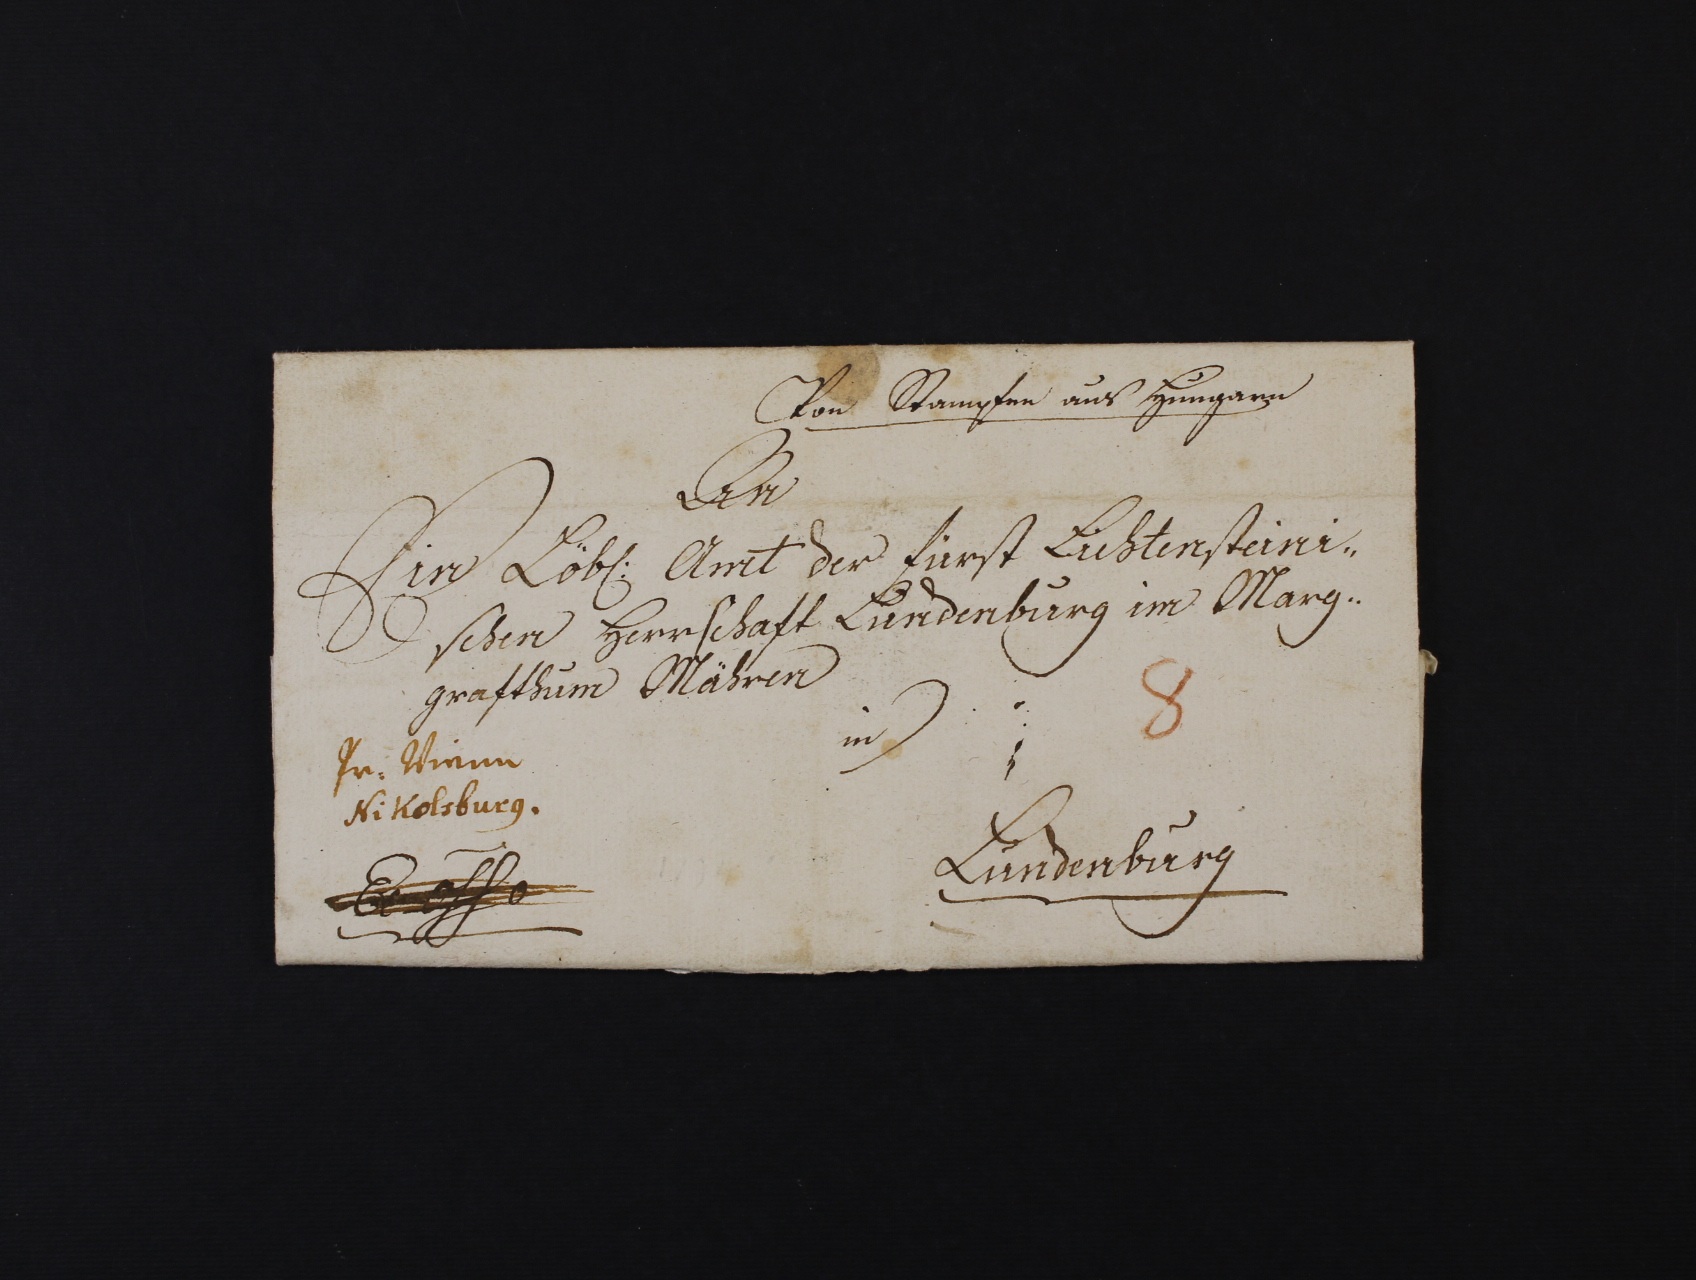 Von Stampfen aus Hungarn
An
Ein Löbl: Amt der fürst Lichtensteini„
schen Herrschaft Lundenburg im Marg„
grafthum Mähren
in
8
Pr. Wienn
Nikolsburg.
Lundenburg